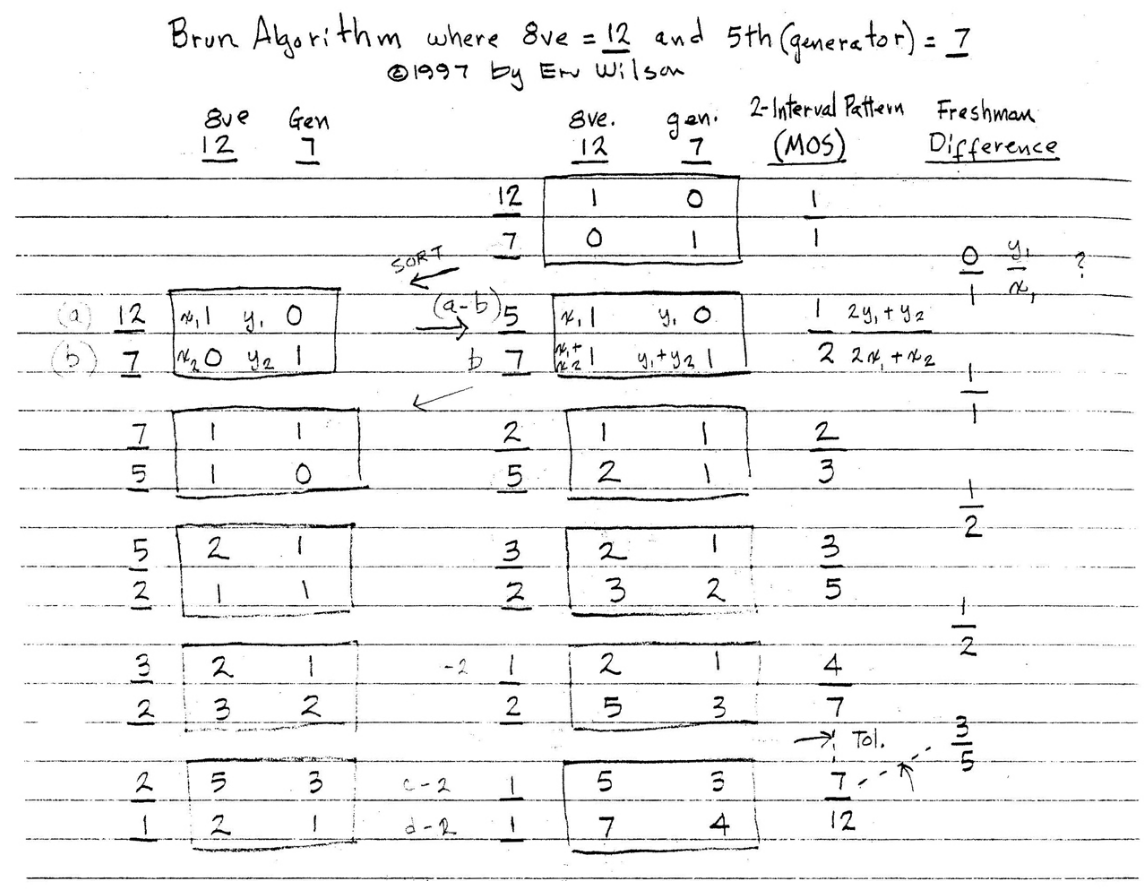 Brun Algorithm where 8ve = 12 and 5th (generator) = 7
©1997 by Erv Wilson
8ve Gen 8ve. gen. 2-Interval Pattern Freshman
12 7 12 7 (MOS) Difference
12 1 0 1
7 0 1 1
SORT 0/1 y₁/x₁ ?
(a) 12 x₁1 y₁ 0 (a-b) 5 x₁1 y₁ 0 1 2y₁+y₂
(b) 7 x₂0 y₂ 1 b 7 x₁+x₂1 y₁+y₂1 2 2x₁+x₂
1/1
7 1 1 2 1 1 2
5 1 0 5 2 1 3
1/2
5 2 1 3 2 1 3
2 1 1 2 3 2 5
1/2
3 2 1 -2 1 2 1 4
2 3 2 2 5 3 7
→ Tol. 3/5
2 5 3 c-2 1 5 3 7
1 2 1 d-2 1 7 4 12